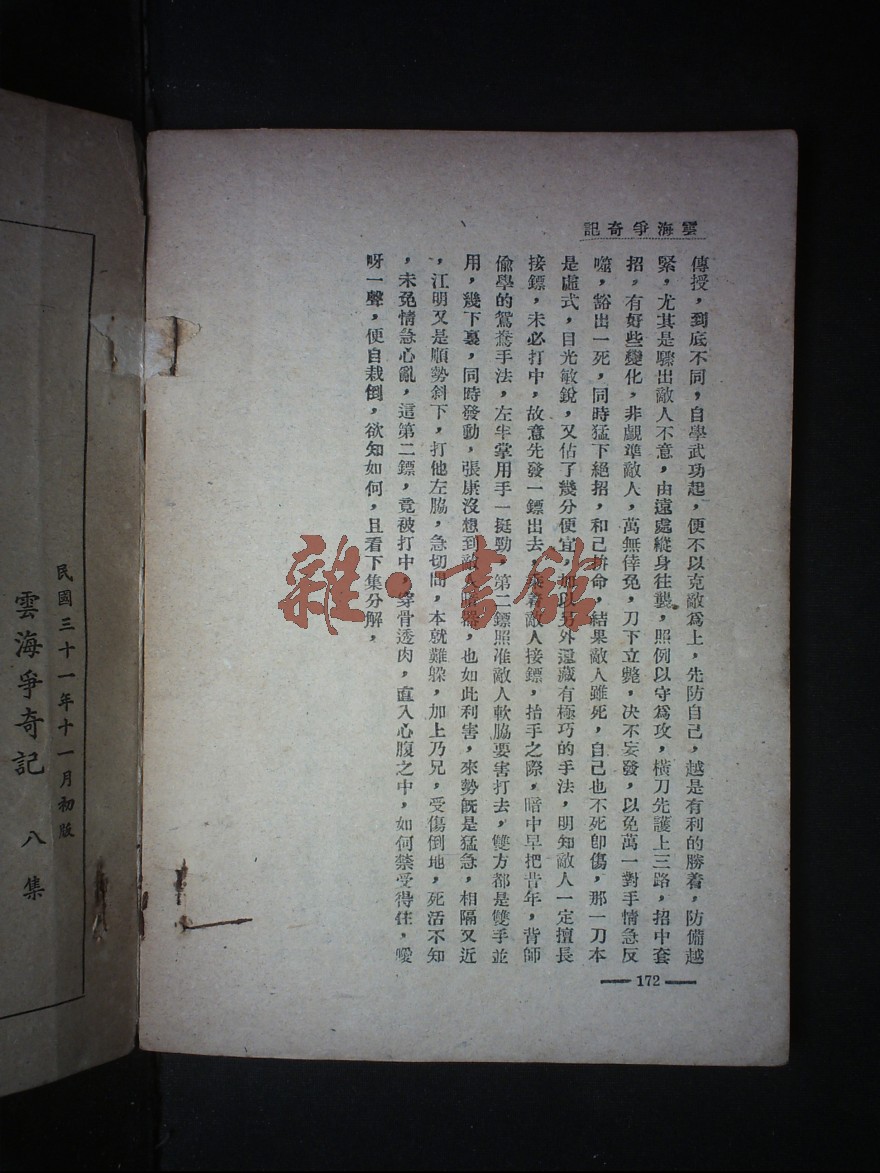 雲海爭奇記
傳授，到底不同，自學武功起，便不以克敵爲上，先防自己，越是有利的勝着，防備越
緊，尤其是驟出敵人不意，由遠處縱身往襲，照例以守爲攻，橫刀先護上三路，招中套
招，有好些變化，非覷準敵人，萬無倖免，刀下立斃，决不妄發，以免萬一對手情急反
噬，豁出一死，同時猛下絕招，和己拚命，結果敵人雖死，自己也不死卽傷，那一刀本
是虛式，目光敏銳，又佔了幾分便宜，加以另外還藏有極巧的手法，明知敵人一定擅長
接鏢，未必打中，故意先發一鏢出去，乘着敵人接鏢，抬手之際，暗中早把昔年，背師
偷學的鴛鴦手法，左半掌用手一挺勁，第二鏢照准敵人軟脇要害打去，雙方都是雙手並
用，幾下裏，同時發動，張康沒想到敵人暗器，也如此利害，來勢旣是猛急，相隔又近
，江明又是順勢斜下，打他左脇，急切間，本就難躲，加上乃兄，受傷倒地，死活不知
，未免情急心亂，這第二鏢，竟被打中，穿骨透肉，直入心腹之中，如何禁受得住，噯
呀一聲，便自栽倒，欲知如何，且看下集分解，
172
民國三十一年十一月初版
雲海爭奇記 八集
雜·書館